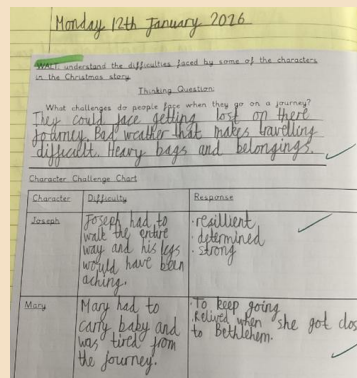 Monday 12th January 2026
WALT: understand the difficulties faced by some of the characters
in the Christmas story
Thinking Question:
What challenges do people face when they go on a journey?
They could face getting lost on there
journey. Bad weather that makes travelling
difficult. Heavy bags and belongings.
Character Challenge Chart
Character Difficulty Response
Joseph
Joseph had to
walk the entire
way and his legs
would have been
aching.
· resillient
· determined
· strong
Mary
Mary had to
carry baby and
was tired from
the journey.
· To keep going
· Relived when she got clos
to Bethlehem.